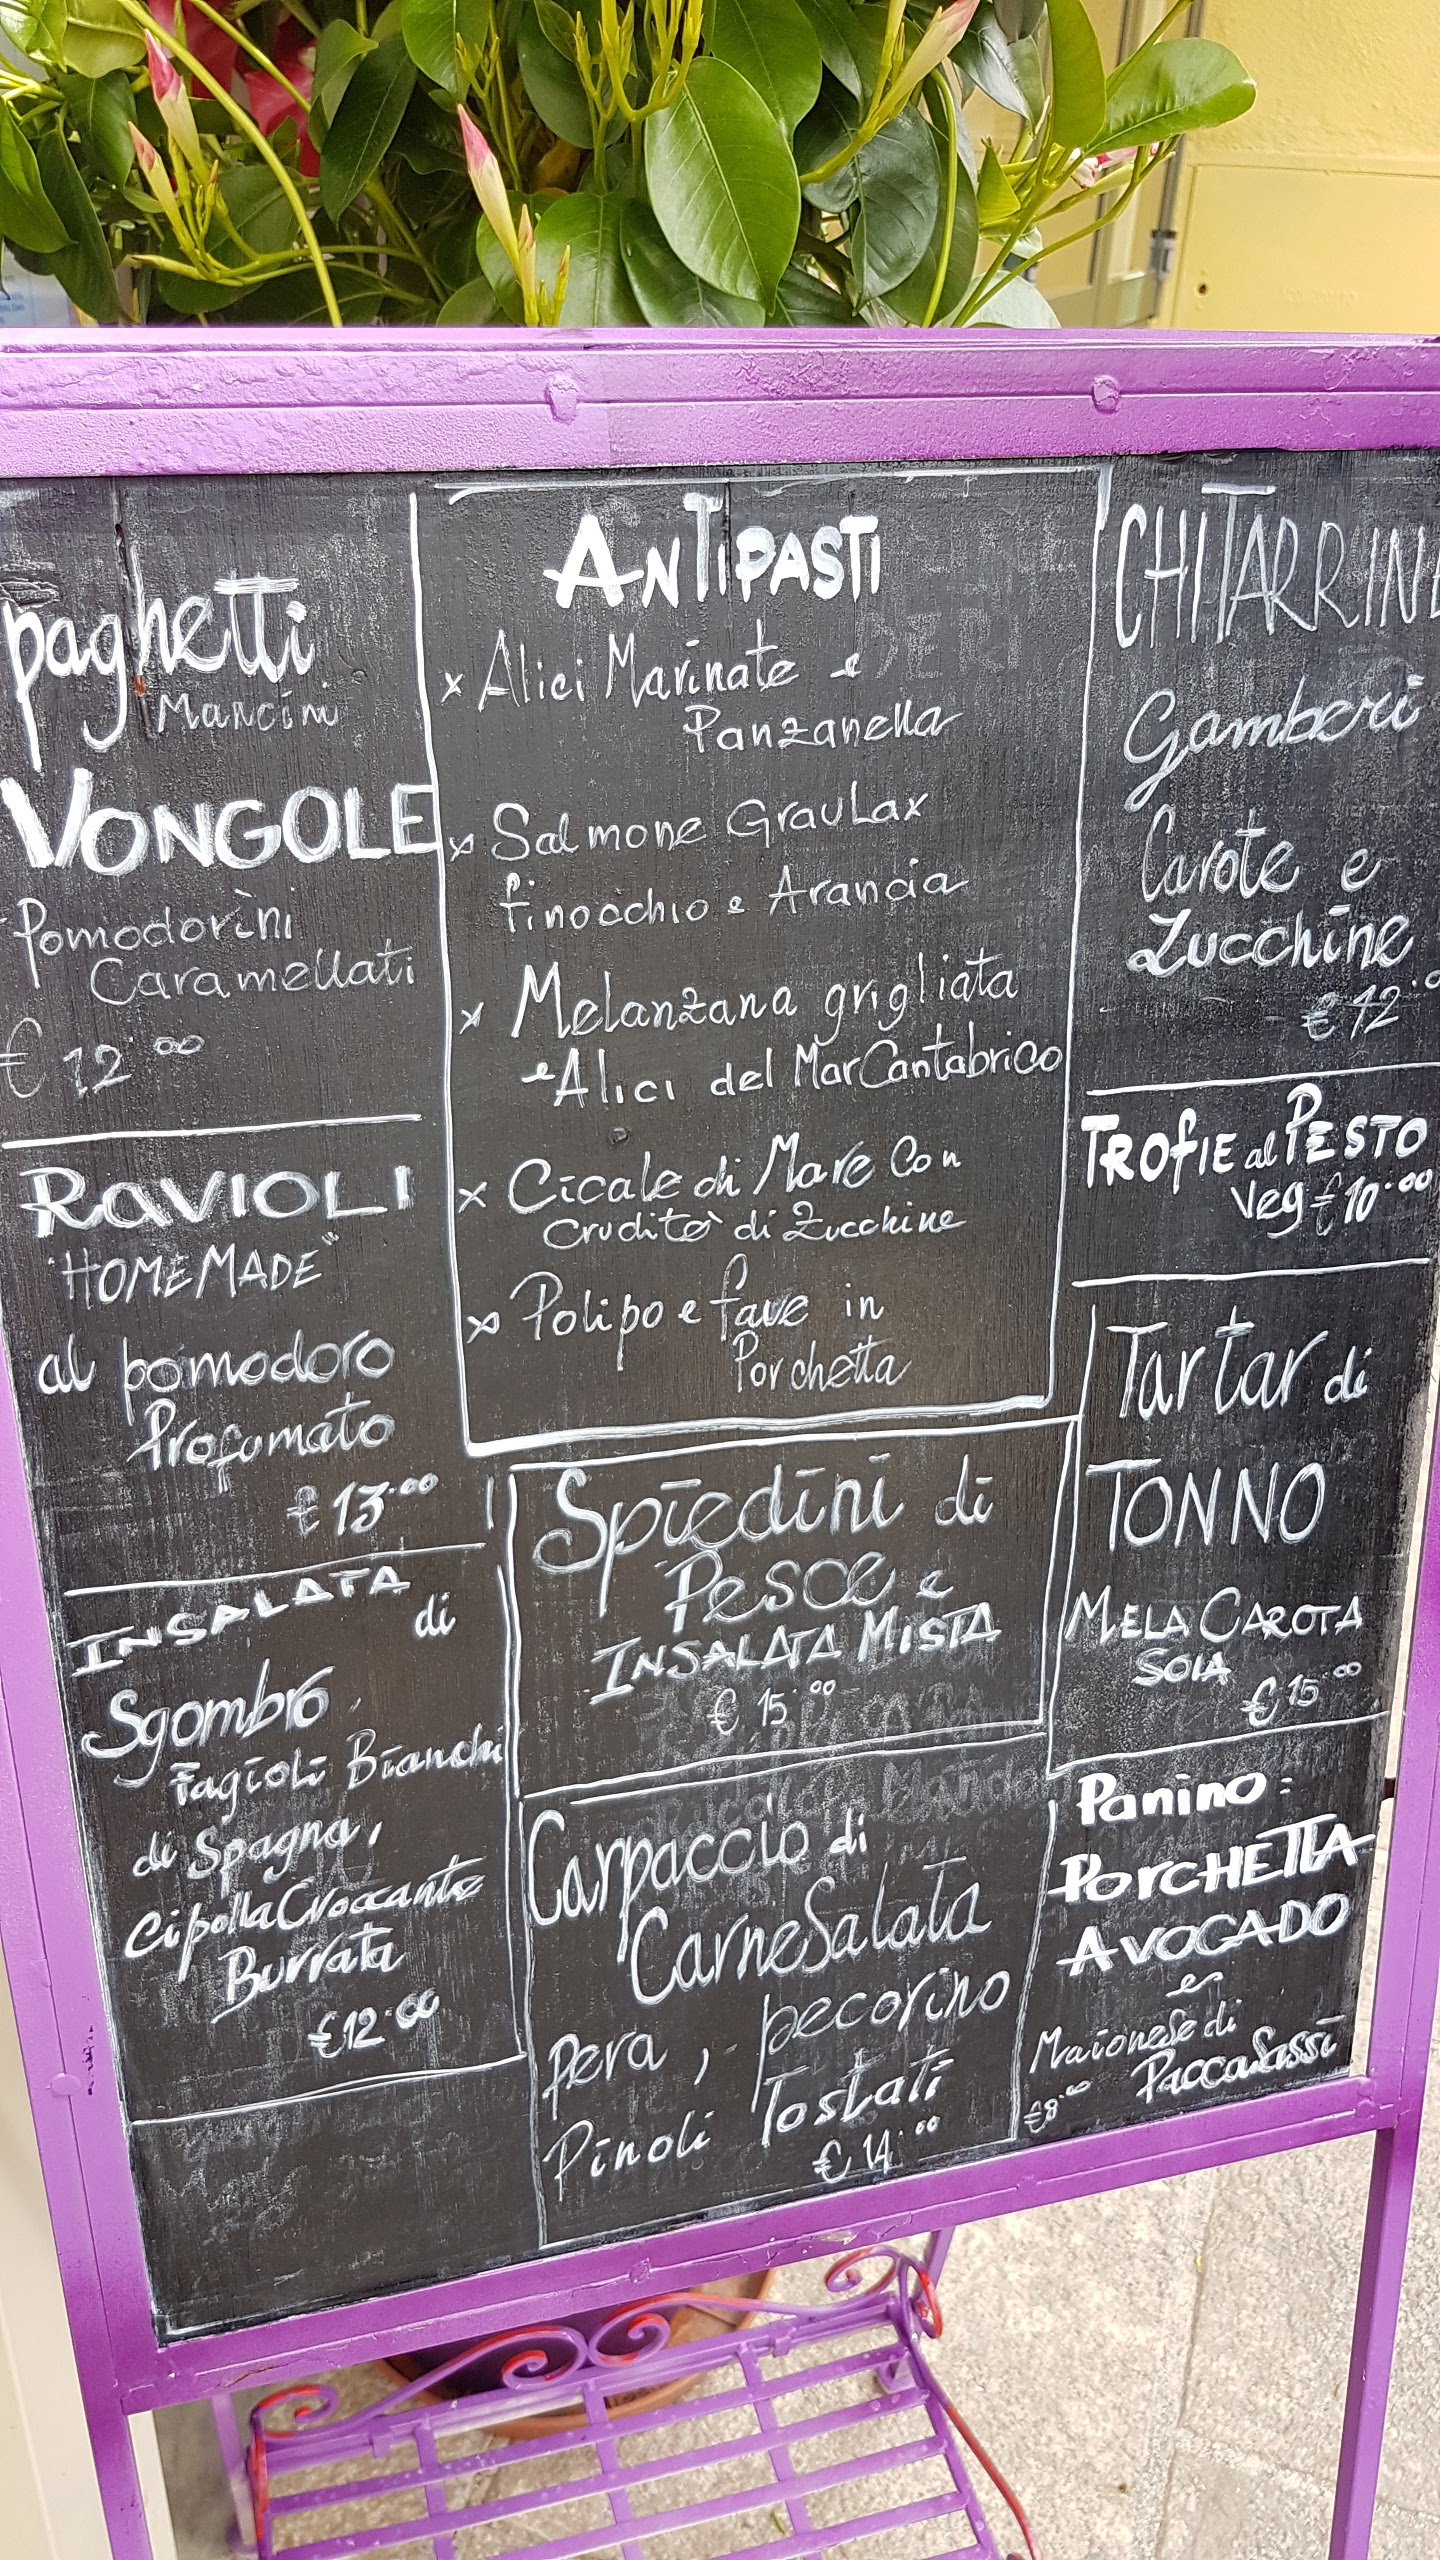 Spaghetti
Mancini
VONGOLE
Pomodorini
Caramellati
€ 12.00
RAVIOLI
"HOMEMADE"
al pomodoro
Profumato
€ 13.00
INSALATA
di
Sgombro
Fagioli Bianchi
di Spagna,
Cipolla Croccante
Burrata
€12.00
ANTIPASTI
x Alici Marinate e
Panzanella
x Salmone Graulax
finocchio e Arancia
x Melanzana grigliata
e Alici del Mar Cantabrico
x Cicale di Mare Con
Crudità di Zucchine
x Polipo e fave in
Porchetta
Spiedini di
Pesce e
INSALATA MISTA
€ 15.00
Carpaccio di
Carne Salata
pera, pecorino
Pinoli Tostati
€ 14.00
CHITARRINE
Gamberi
Carote e
Zucchine
€ 12.00
TROFIE al PESTO
Veg € 10.00
Tartar di
TONNO
MELA CAROTA
SOIA
€ 15.00
Panino:
PORCHETTA
AVOCADO
e
Maionese di
PaccaSassi
€8.00